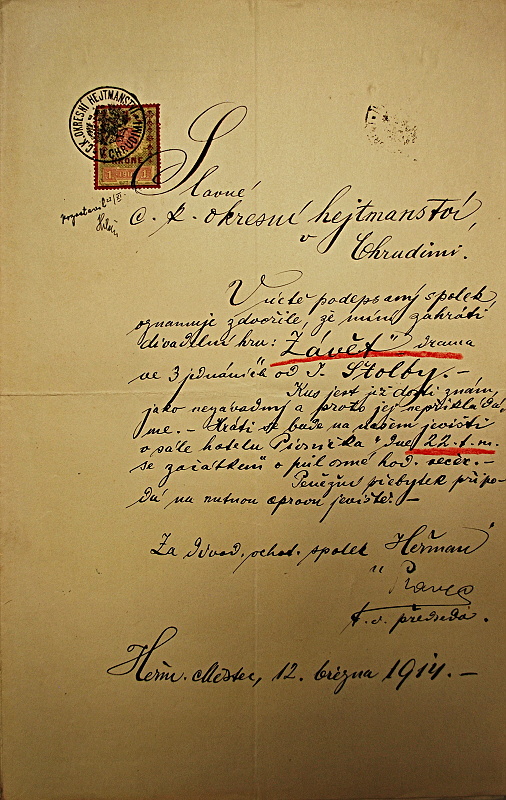 C.K. OKRESNÍ HEJTMANSTVÍ
V CHRUDIMI
KRONE
1 1910 1
Slavné
c. k. okresní hejtmanství
v
Chrudimi.
V úctě podepsaný spolek
oznamuje zdvořile, že míní zahráti
divadelní hru: „Závěť" drama
ve 3 jednáních od J. Štolby. —
Kus jest již dosti znám,
jako nezávadný a proto jej nepřikládá-
me. — Hráti se bude na našem jevišti
v sále hotelu Pisníčka dne 22. t. m.
se začátkem o půl osmé hod. večer. —
Peněžní přebytek připa-
dá na nutnou opravu jeviště. —
Za divad. ochot. spolek „Heřman"
t. č. předseda.
Heřm. Městec, 12. března 1914. —